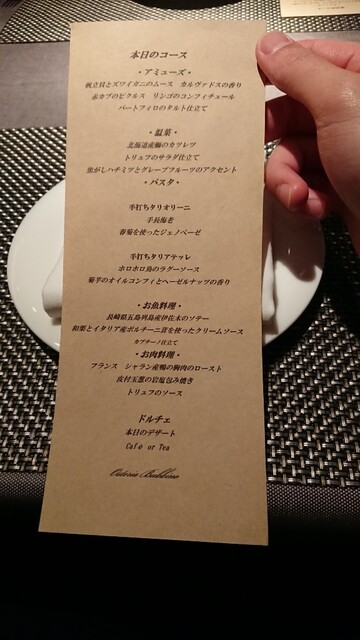 本日のコース
・アミューズ・
帆立貝とズワイガニのムース　カルヴァドスの香り
赤カブのピクルス　リンゴのコンフィチュール
パートフィロのタルト仕立て
・温菜・
北海道産鱈のカツレツ
トリュフのサラダ仕立て
焦がしハチミツとグレープフルーツのアクセント
・パスタ・
手打ちタリオリーニ
手長海老
春菊を使ったジェノベーゼ
手打ちタリアテッレ
ホロホロ鳥のラグーソース
菊芋のオイルコンフィとヘーゼルナッツの香り
・お魚料理・
長崎県五島列島産伊佐木のソテー
和栗とイタリア産ポルチーニ茸を使ったクリームソース
カプチーノ仕立て
・お肉料理・
フランス　シャラン産鴨の胸肉のロースト
皮付玉葱の岩塩包み焼き
トリュフのソース
ドルチェ
本日のデザート
Café or Tea
Osteria